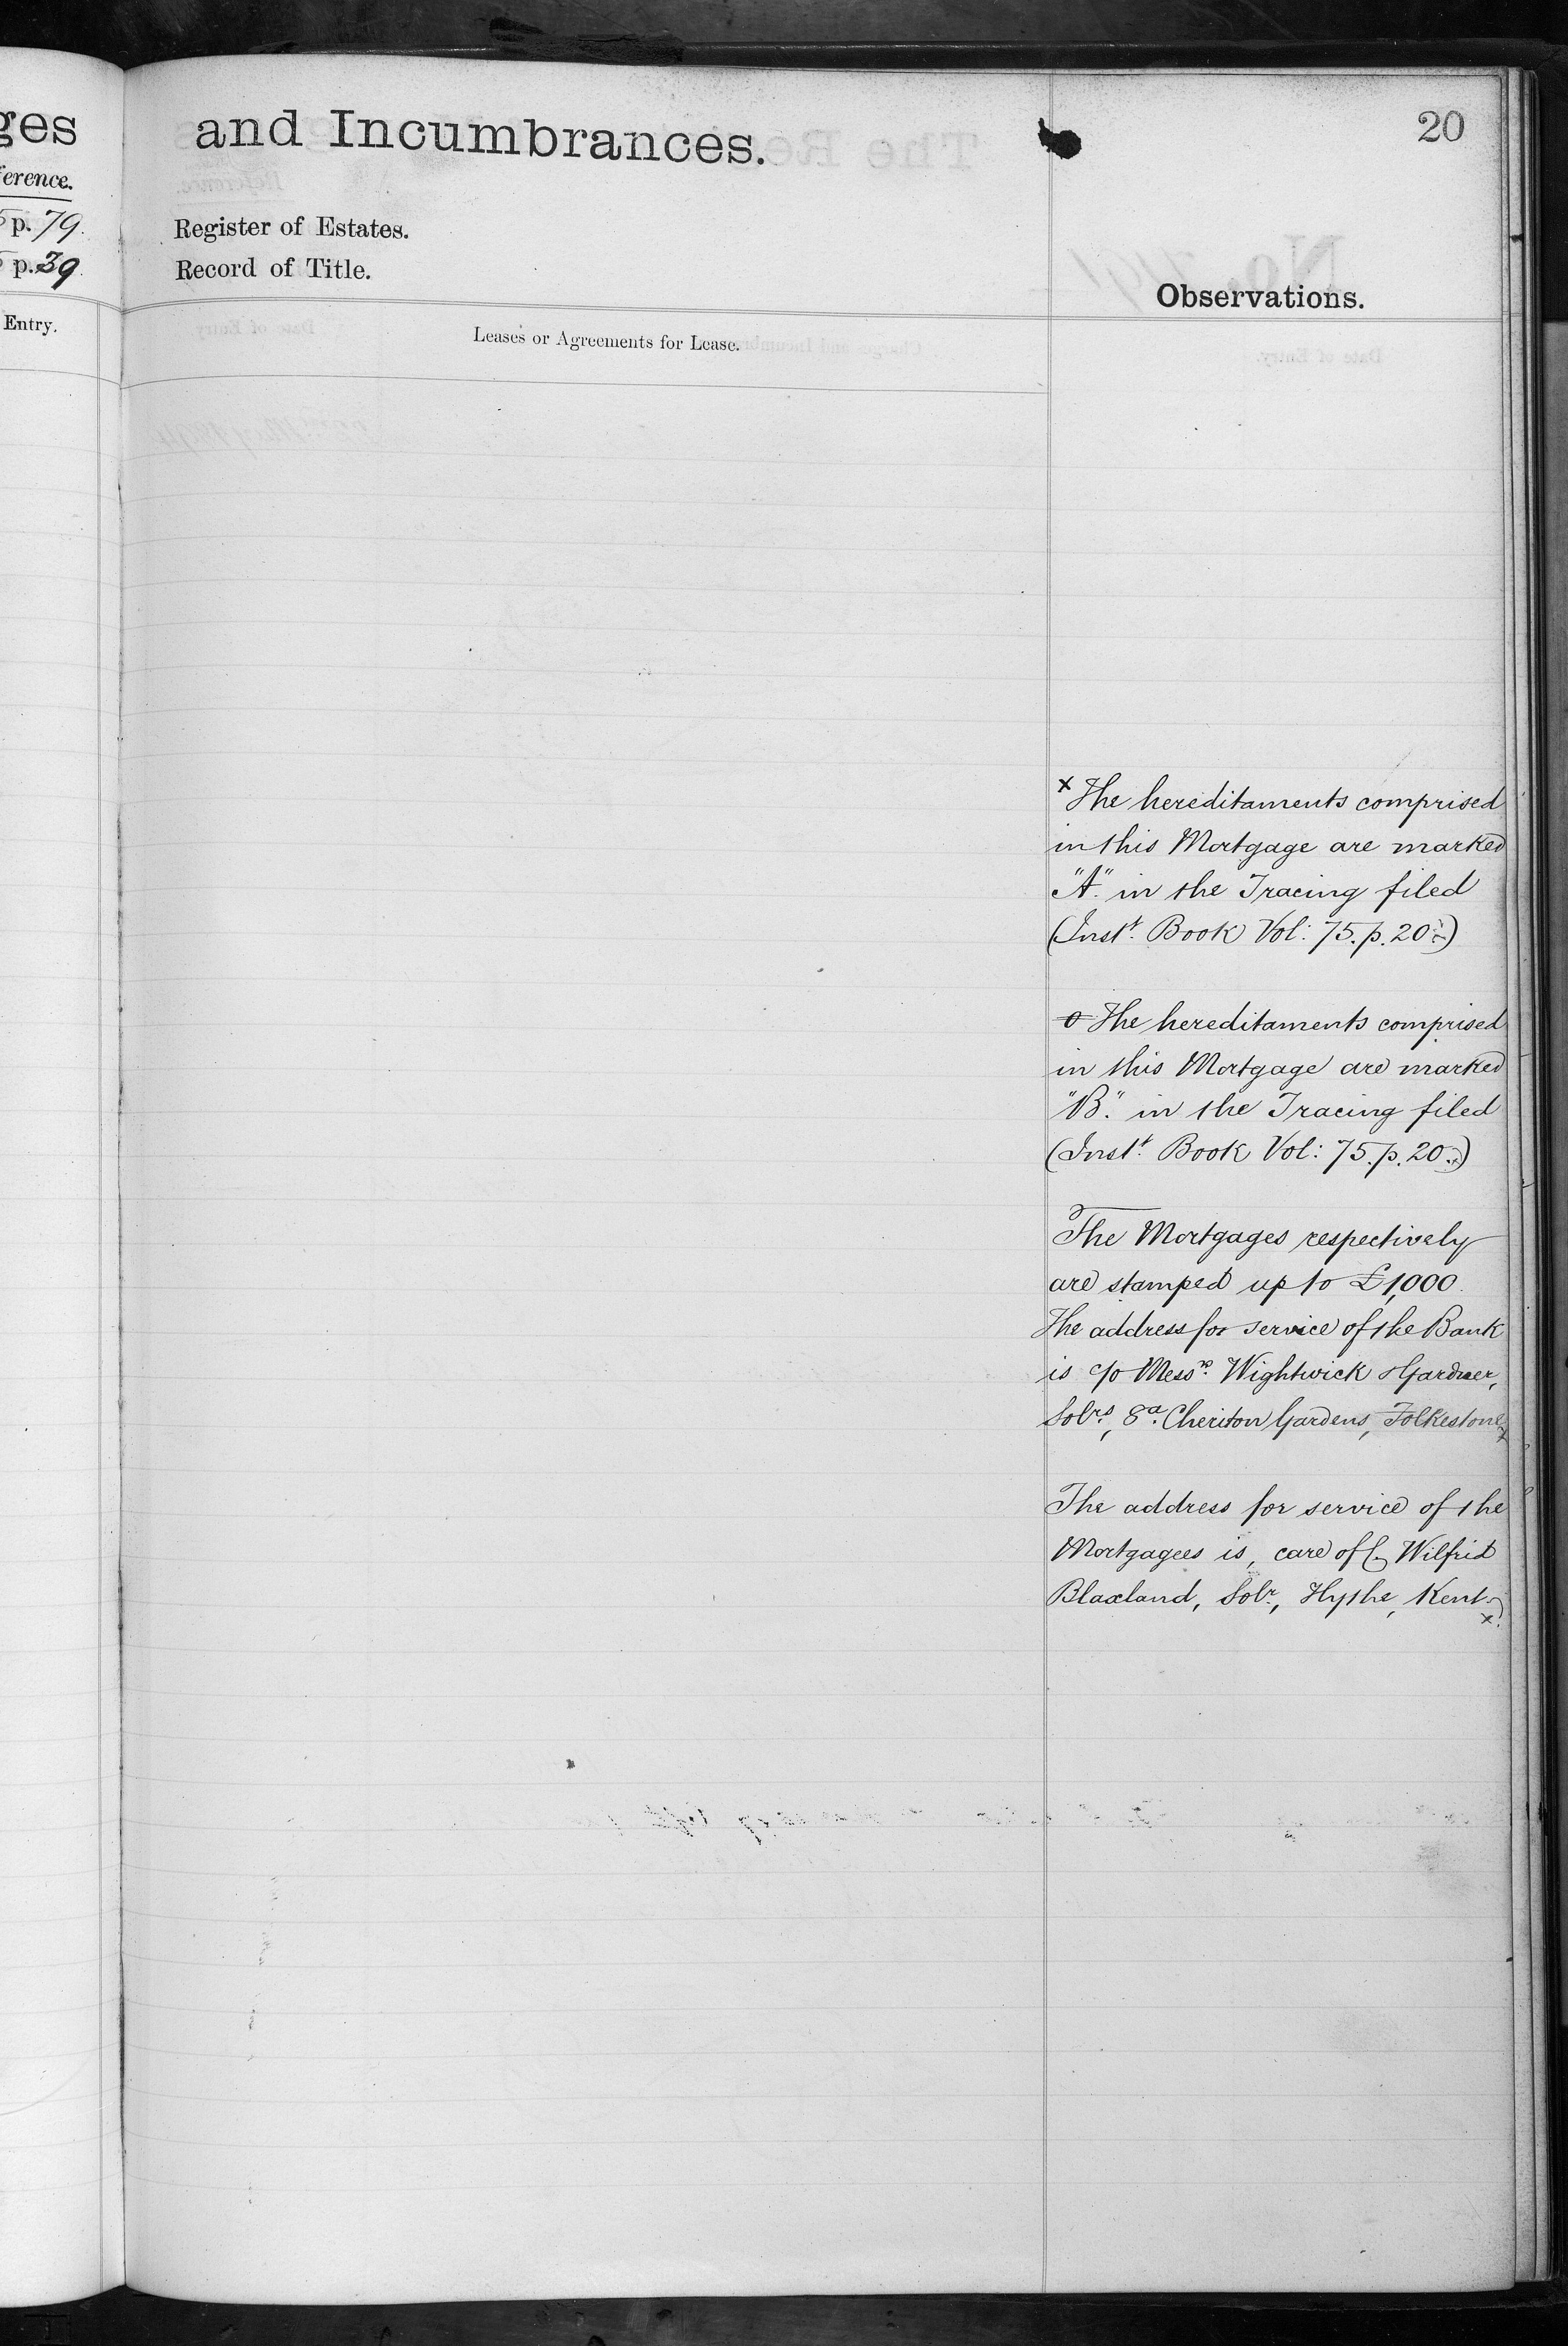 ges
erence.
p. 79.
p. 39
Entry.
and Incumbrances.
20
Register of Estates.
Record of Title.
Observations.
Leases or Agreements for Lease.
x The hereditaments comprised
in this Mortgage are marked
"A" in the Tracing filed
(Inst. Book Vol: 75. p. 20.)
o The hereditaments comprised
in this Mortgage are marked
"B" in the Tracing filed
(Inst. Book Vol: 75. p. 20.)
The Mortgages respectively
are stamped up to £1,000.
The address for service of the Bank
is c/o Messrs. Wightwick & Gardner,
Solrs., 8a. Cheriton Gardens, Folkestone
The address for service of the
Mortgagees is, care of C. Wilfrid
Blaxland, Solr., Hythe, Kent